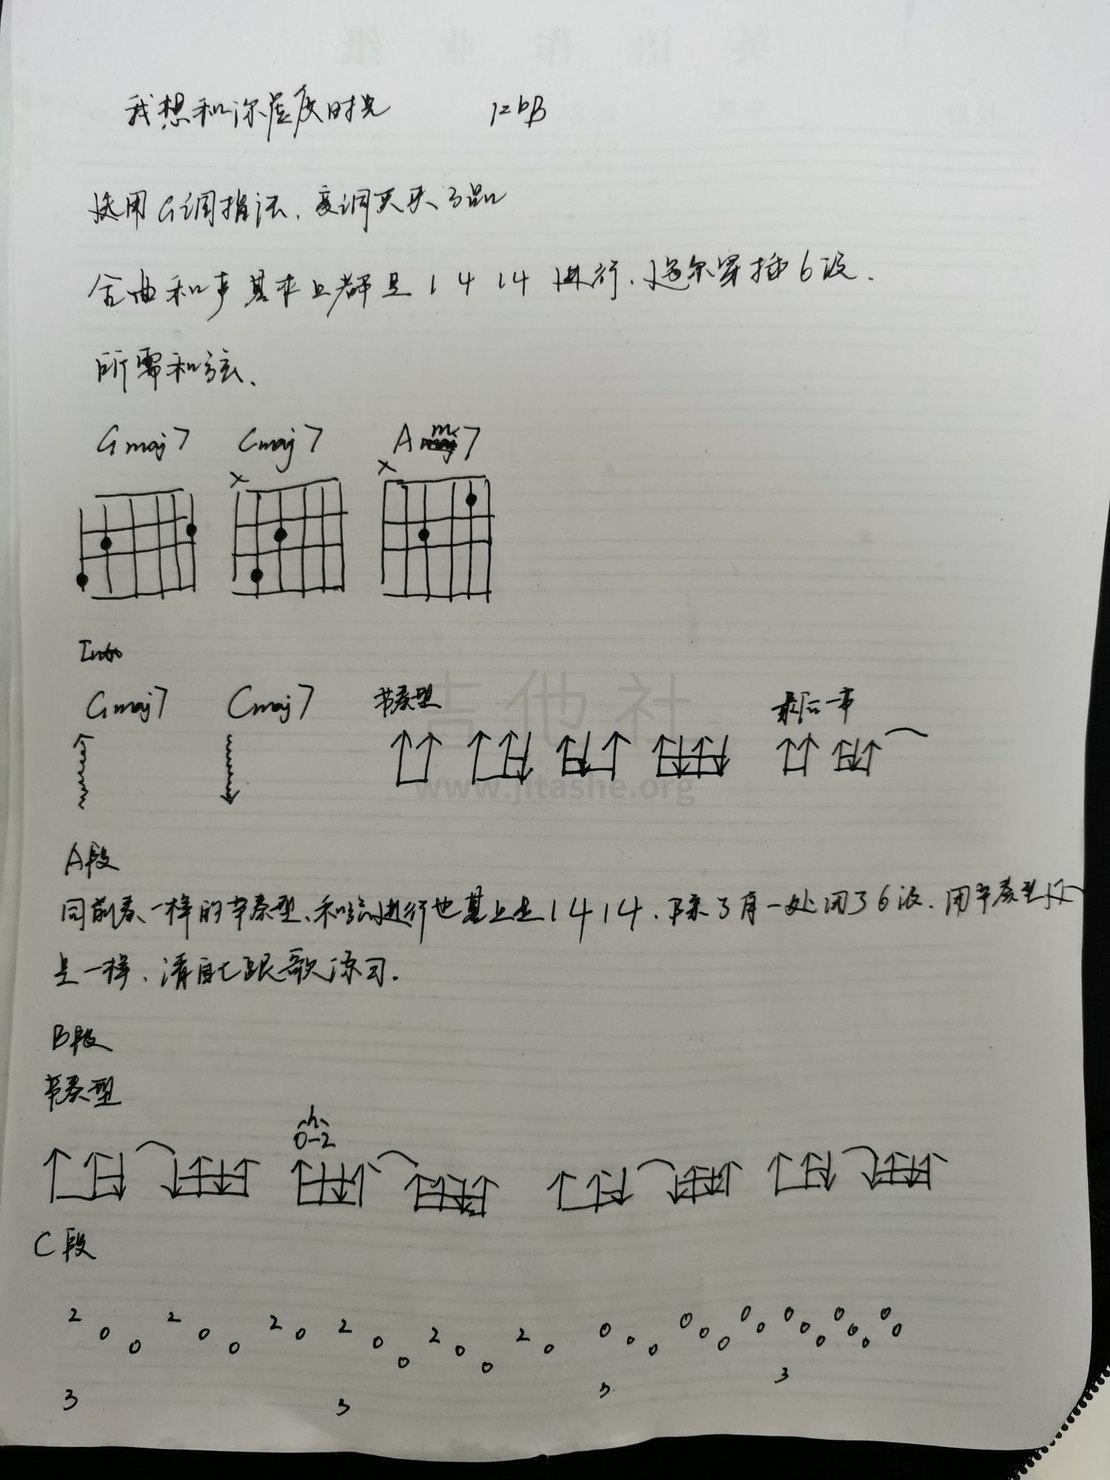 我想和你虚度时光 1=bB
选用G调指法、变调夹夹3品
全曲和声基本上都是1 4 1 4 进行、偶尔穿插6级.
所需和弦、
Gmaj7 Cmaj7 Am7
x x
Intro
Gmaj7 Cmaj7 节奏型 最后一节
吉他社
www.jitashe.org
A段
同前奏一样的节奏型、和弦进行也基上是1 4 1 4、除了有一处用了6级、用节奏型
是一样、请自己跟歌练习.
B段
节奏型
h
0-2
C段
2 2 2 2 2 2 0 0 0 0 0 0
0 0 0 0 0 0 0 0 0 0 0
0 0 0 0 0 0 0 0
3 3 3 3